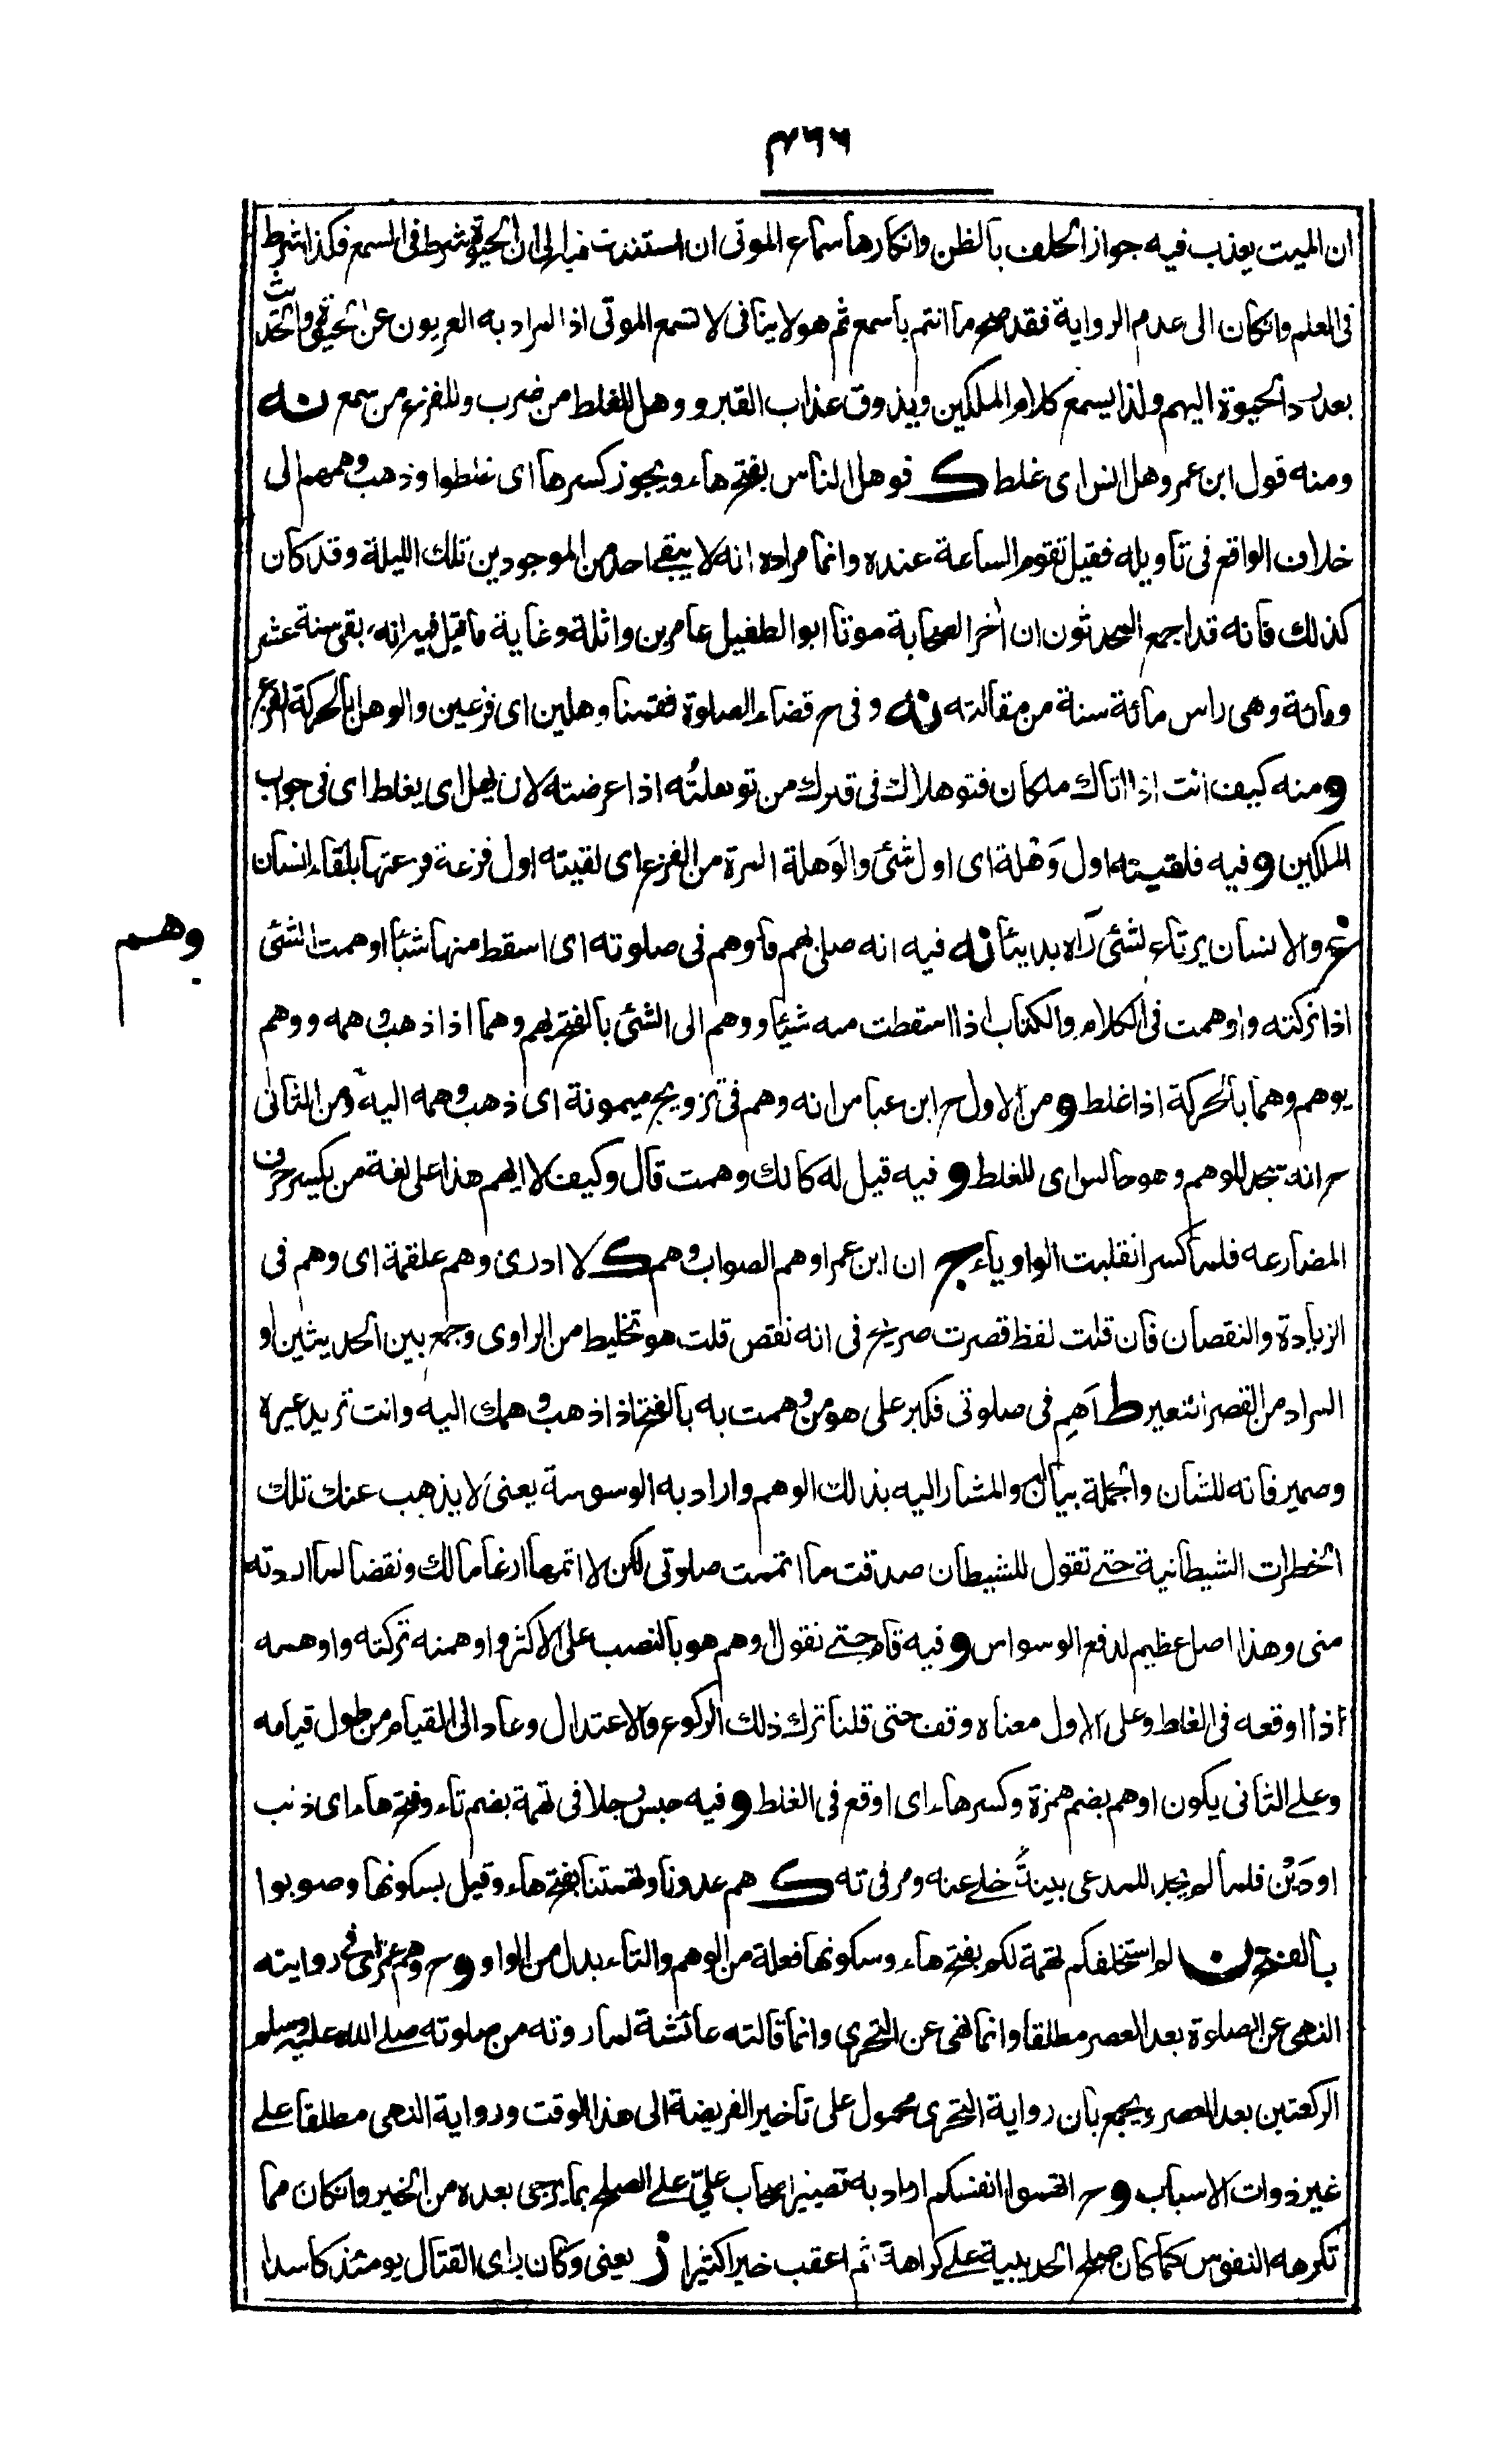 ۴۶۶
ان الميت يعذب فيه جواز الحلف بالظن وانكارها سماع الموتى ان استندت فيه الى ان الحيوة شرط فى السمع فكذا شرط
فى العلم وانكان الى عدم الرواية فقد صح ما انتم باسمع ثم هو لا ينافى لا تسمع الموتى اذ المراد به العريون عن الحيوة والتحديث
بعد رد الحيوة اليهم ولذا يسمع كلام الملكين ويذوق عذاب القبر ووهل للغلط من ضرب وللفزع من سمع نه
ومنه قول ابن عمر وهل انس اى غلط ك فوهل الناس بفتح هاء ويجوز كسرها اى غلطوا وذهب وهمهم الى
خلاف الواقع فى تاويله فقيل تقوم الساعة عنده وانما مراده انه لا يبقى احد من الموجودين تلك الليلة وقد كان
كذلك فانه قد اجمع المحدثون ان أخر الصحابة موتا ابو الطفيل عامر بن واثلة وغاية ما قيل فيه انه بقى سنة عشر
ومائة وهى راس مائة سنة من مقالته نه وفى ح قضاء الصلوة فقمنا وهلين اى فزعين والوهل بالحركة الفزع
ومنه كيف انت اذا اتاك ملكان فتوهلاك فى قبرك من توهلتُه اذا عرضته لان يهل اى يغلط اى فى جواب
الملكين وفيه فلقيته اول وَهْلة اى اول شئ والوَهلة المرة من الفزع اى لقيته اول فزعة فزعتها بلقاء انسان
غ والانسان يرتاع لشئ رآه بديئا نه فيه انه صلى بهم فاوهم فى صلوته اى اسقط منها شيئا اوهمت الشئ
وهم
اذا تركته واوهمت فى الكلام والكتاب اذا اسقطت منه شيئا ووهم الى الشئ بالفتح يهم وهما اذا ذهب وهمه ووهم
يوهم وهما بالحركة اذا غلط ومن الاول ح ابن عباس انه وهم فى تزويج ميمونة اى ذهب وهمه اليه ومن الثانى
ح انه سجد للوهم وهو جالس اى للغلط وفيه قيل له كانك وهمت قال وكيف لا ايهم هذا على لغة من يكسر حرف
المضارعه فلما كسر انقلبت الواو ياء ج ان ابن عمر اوهم الصواب وهم ك لا ادرى وهم علقمة اى وهم فى
الزيادة والنقصان فان قلت لفظ قصرت صريح فى انه نقص قلت هو تخليط من الراوى وجمع بين الحديثين او
المراد من القصر التغير ط اَهِم فى صلوتى فكبر على هو من وهمت به بالفتح اذا ذهب وهمك اليه وانت تريد غيره
وضمير فانه للشان والجملة بيان والمشار اليه بذلك الوهم واراد به الوسوسة يعنى لا يذهب عنك تلك
الخطرات الشيطانية حتى تقول للشيطان صدقت ما اتممت صلوتى لكن لا اتمها ارغاما لك ونقضا لما اردته
منى وهذا اصل عظيم لدفع الوسواس وفيه قام حتى نقول اوهم هو بالنصب على الاكثر واوهمته تركته واوهمه
اذا اوقعه فى الغلط وعلى الاول معناه وقف حتى قلنا ترك ذلك الركوع والاعتدال وعاد الى القيام من طول قيامه
وعلى الثانى يكون اوهم بضم همزة وكسر هاء اى اوقع فى الغلط وفيه حبس رجلا فى تهمة بضم تاء وفتح هاء اى ذنب
او دَيْن فلما لم يجد للمدعى بينةً خلى عنه ومر فى ته ك هم عدونا وتهمتنا بفتح هاء وقيل بسكونها وصوبوا
بالفتح ن لم استحلفكم تهمة لكم بفتح هاء وسكونها فعلة من الوهم والتاء بدل من الواو و ح وهم عمر اى فى روايته
النهى عن الصلوة بعد العصر مطلقا وانما نهى عن التحرى وانما قالته عائشة لما روته من صلوته صلى الله عليه وسلم
الركعتين بعد العصر ويجمع بان رواية التحرى محمول على تاخير الفريضة الى هذا الوقت ورواية النهى مطلقا على
غير ذوات الاسباب و ح اتهموا انفسكم اراد به تصبير اصحاب علىّ على الصلح بما يرجى بعده من الخير وانكان مما
تكرهه النفوس كما كان صلح الحديبية على كراهة ثم اعقب خيرا كثيرا ز يعنى وكان راى القتال يومئذ كاسدا